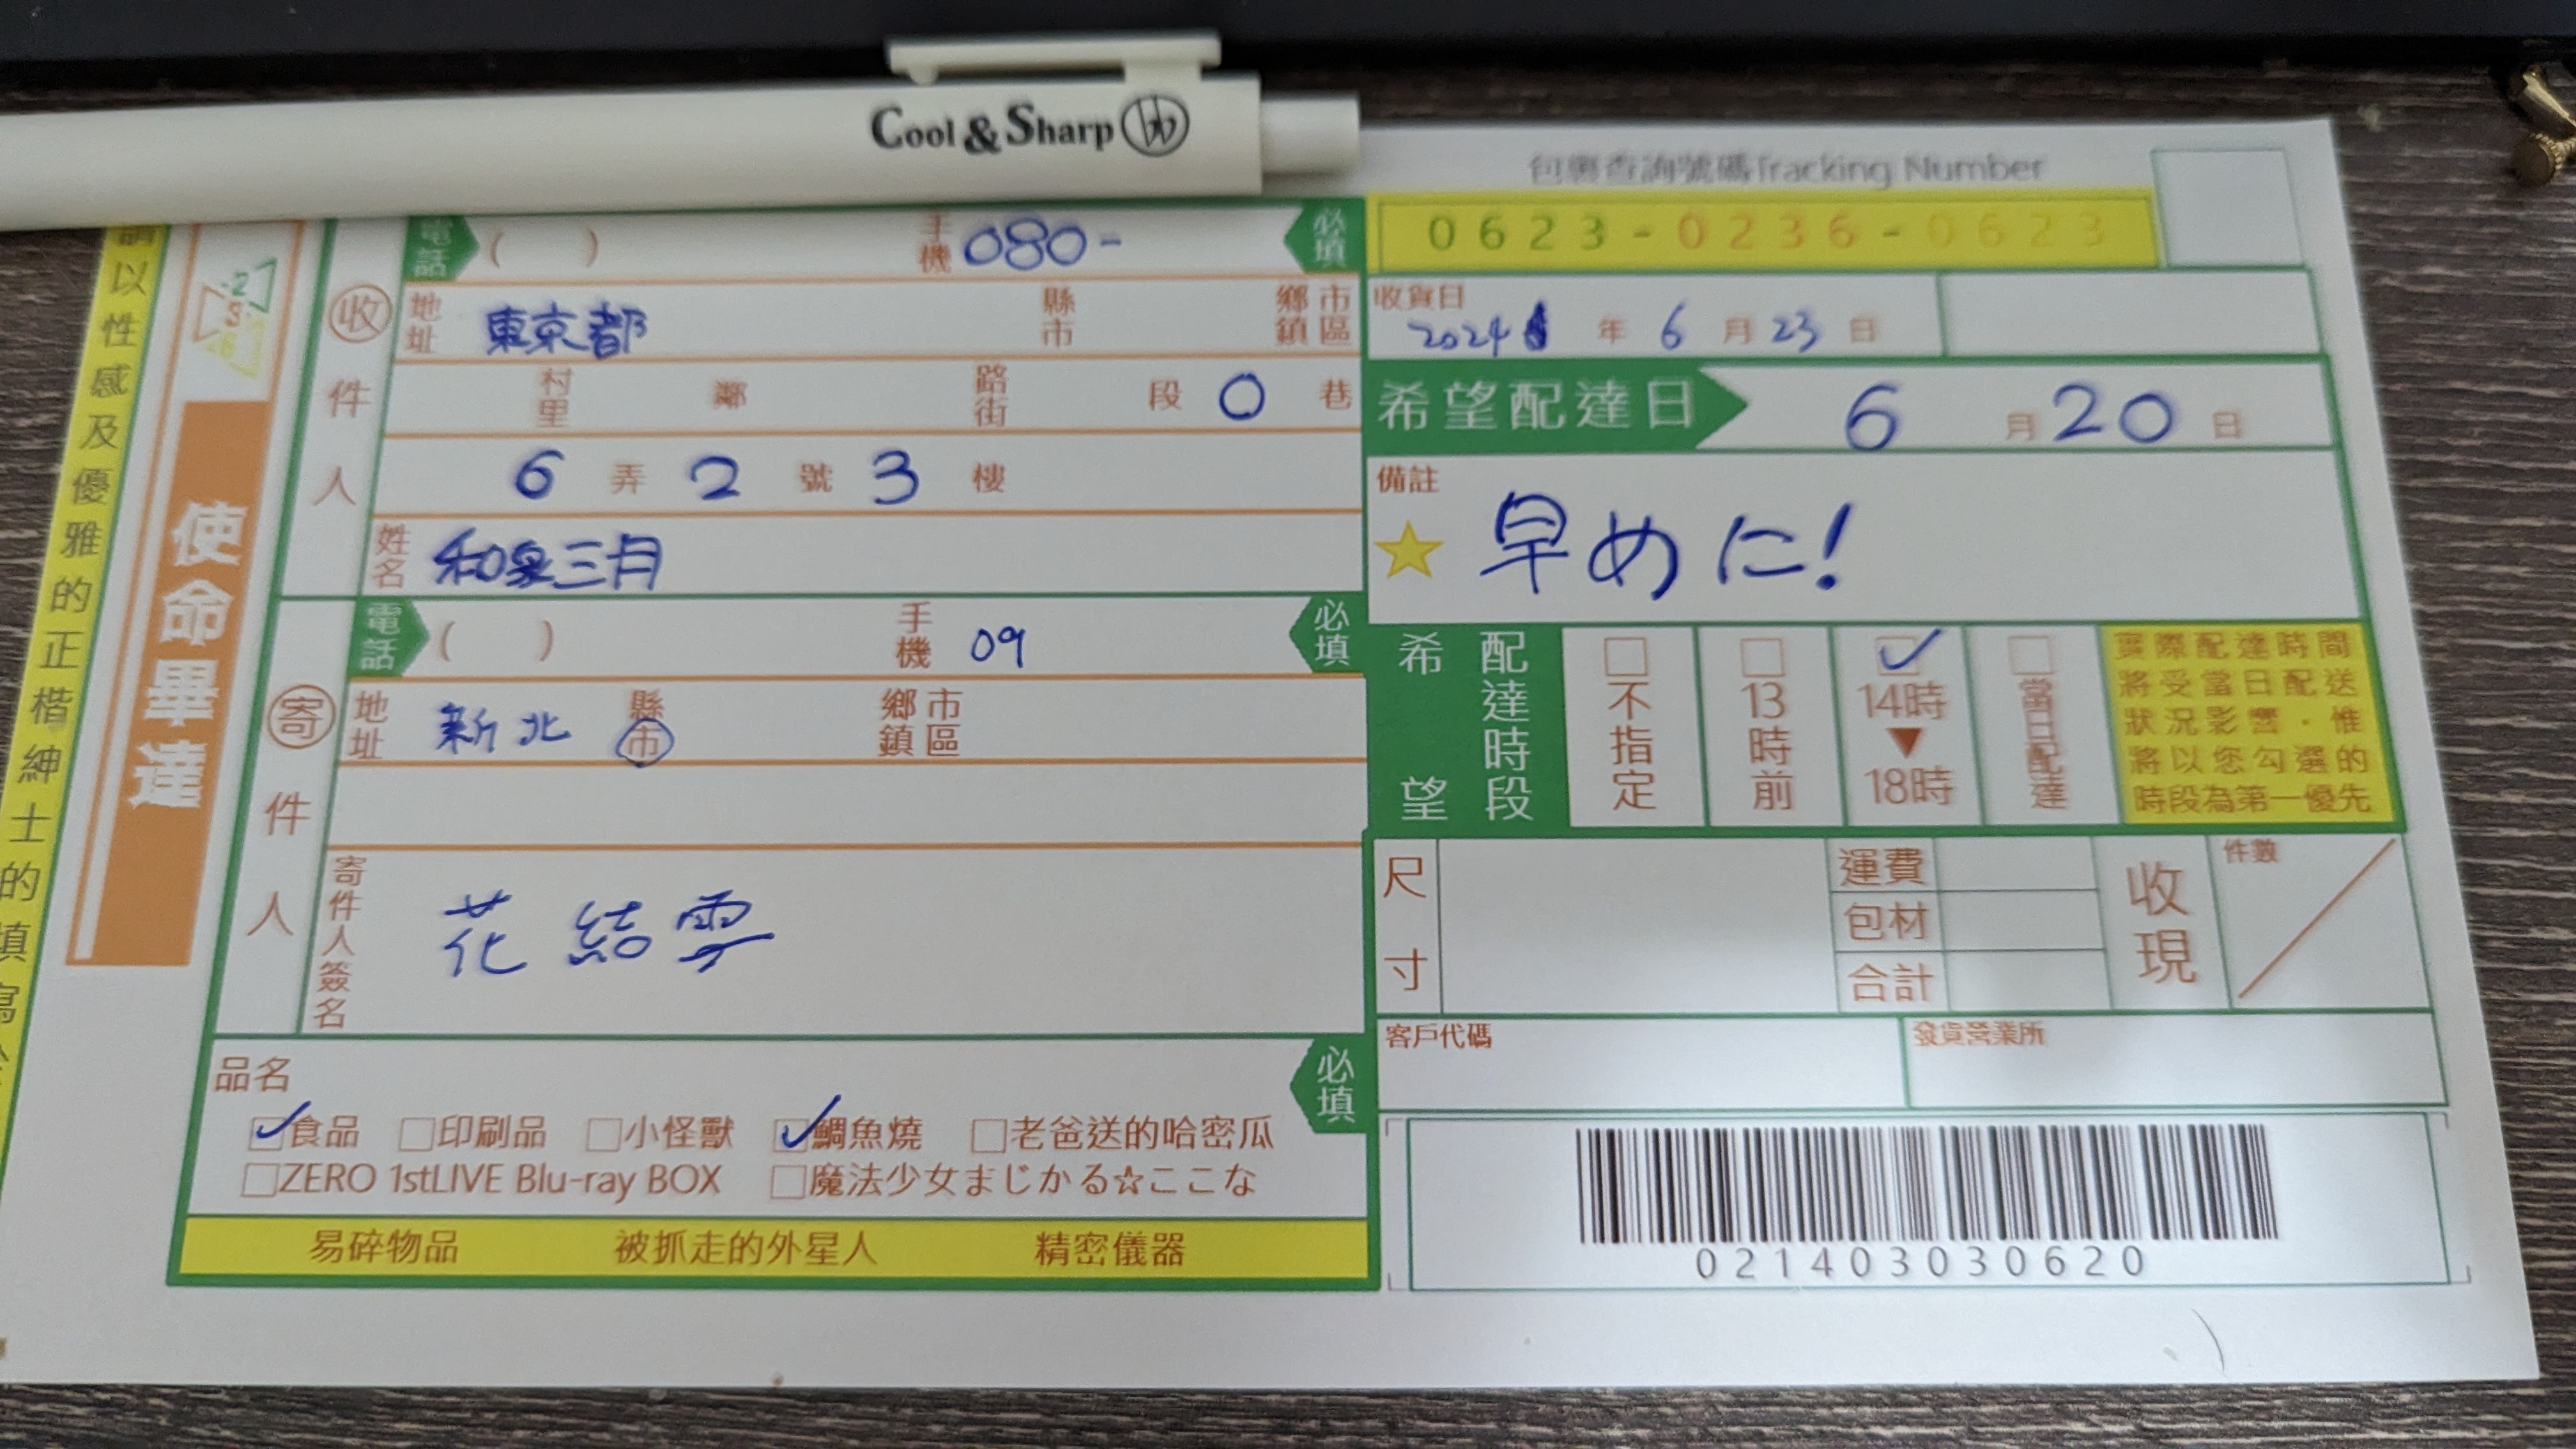 Cool & Sharp
包裹查詢號碼Tracking Number
0623-0236-0623
請以性感及優雅的正楷紳士的填寫
使命畢達
收件人
電話 ( ) 手機 080- 必填
地址 東京都 縣市 鄉鎮市區
村里 鄰 路街 段 0 巷
6 弄 2 號 3 樓
姓名 和泉三月
寄件人
電話 ( ) 手機 09 必填
地址 新北 縣市 鄉鎮市區
寄件人簽名 花結雪
品名 必填
食品 印刷品 小怪獸 鯛魚燒 老爸送的哈密瓜
ZERO 1stLIVE Blu-ray BOX 魔法少女まじかる☆ここな
易碎物品 被抓走的外星人 精密儀器
收貨日
2024 年 6 月 23 日
希望配達日 6 月 20 日
備註
★ 早めに!
希望配達時段
不指定
13時前
14時▼18時
當日配達
實際配達時間
將受當日配送
狀況影響,惟
將以您勾選的
時段為第一優先
尺寸
運費
包材
合計
收現
件數
客戶代碼 發貨營業所
021403030620